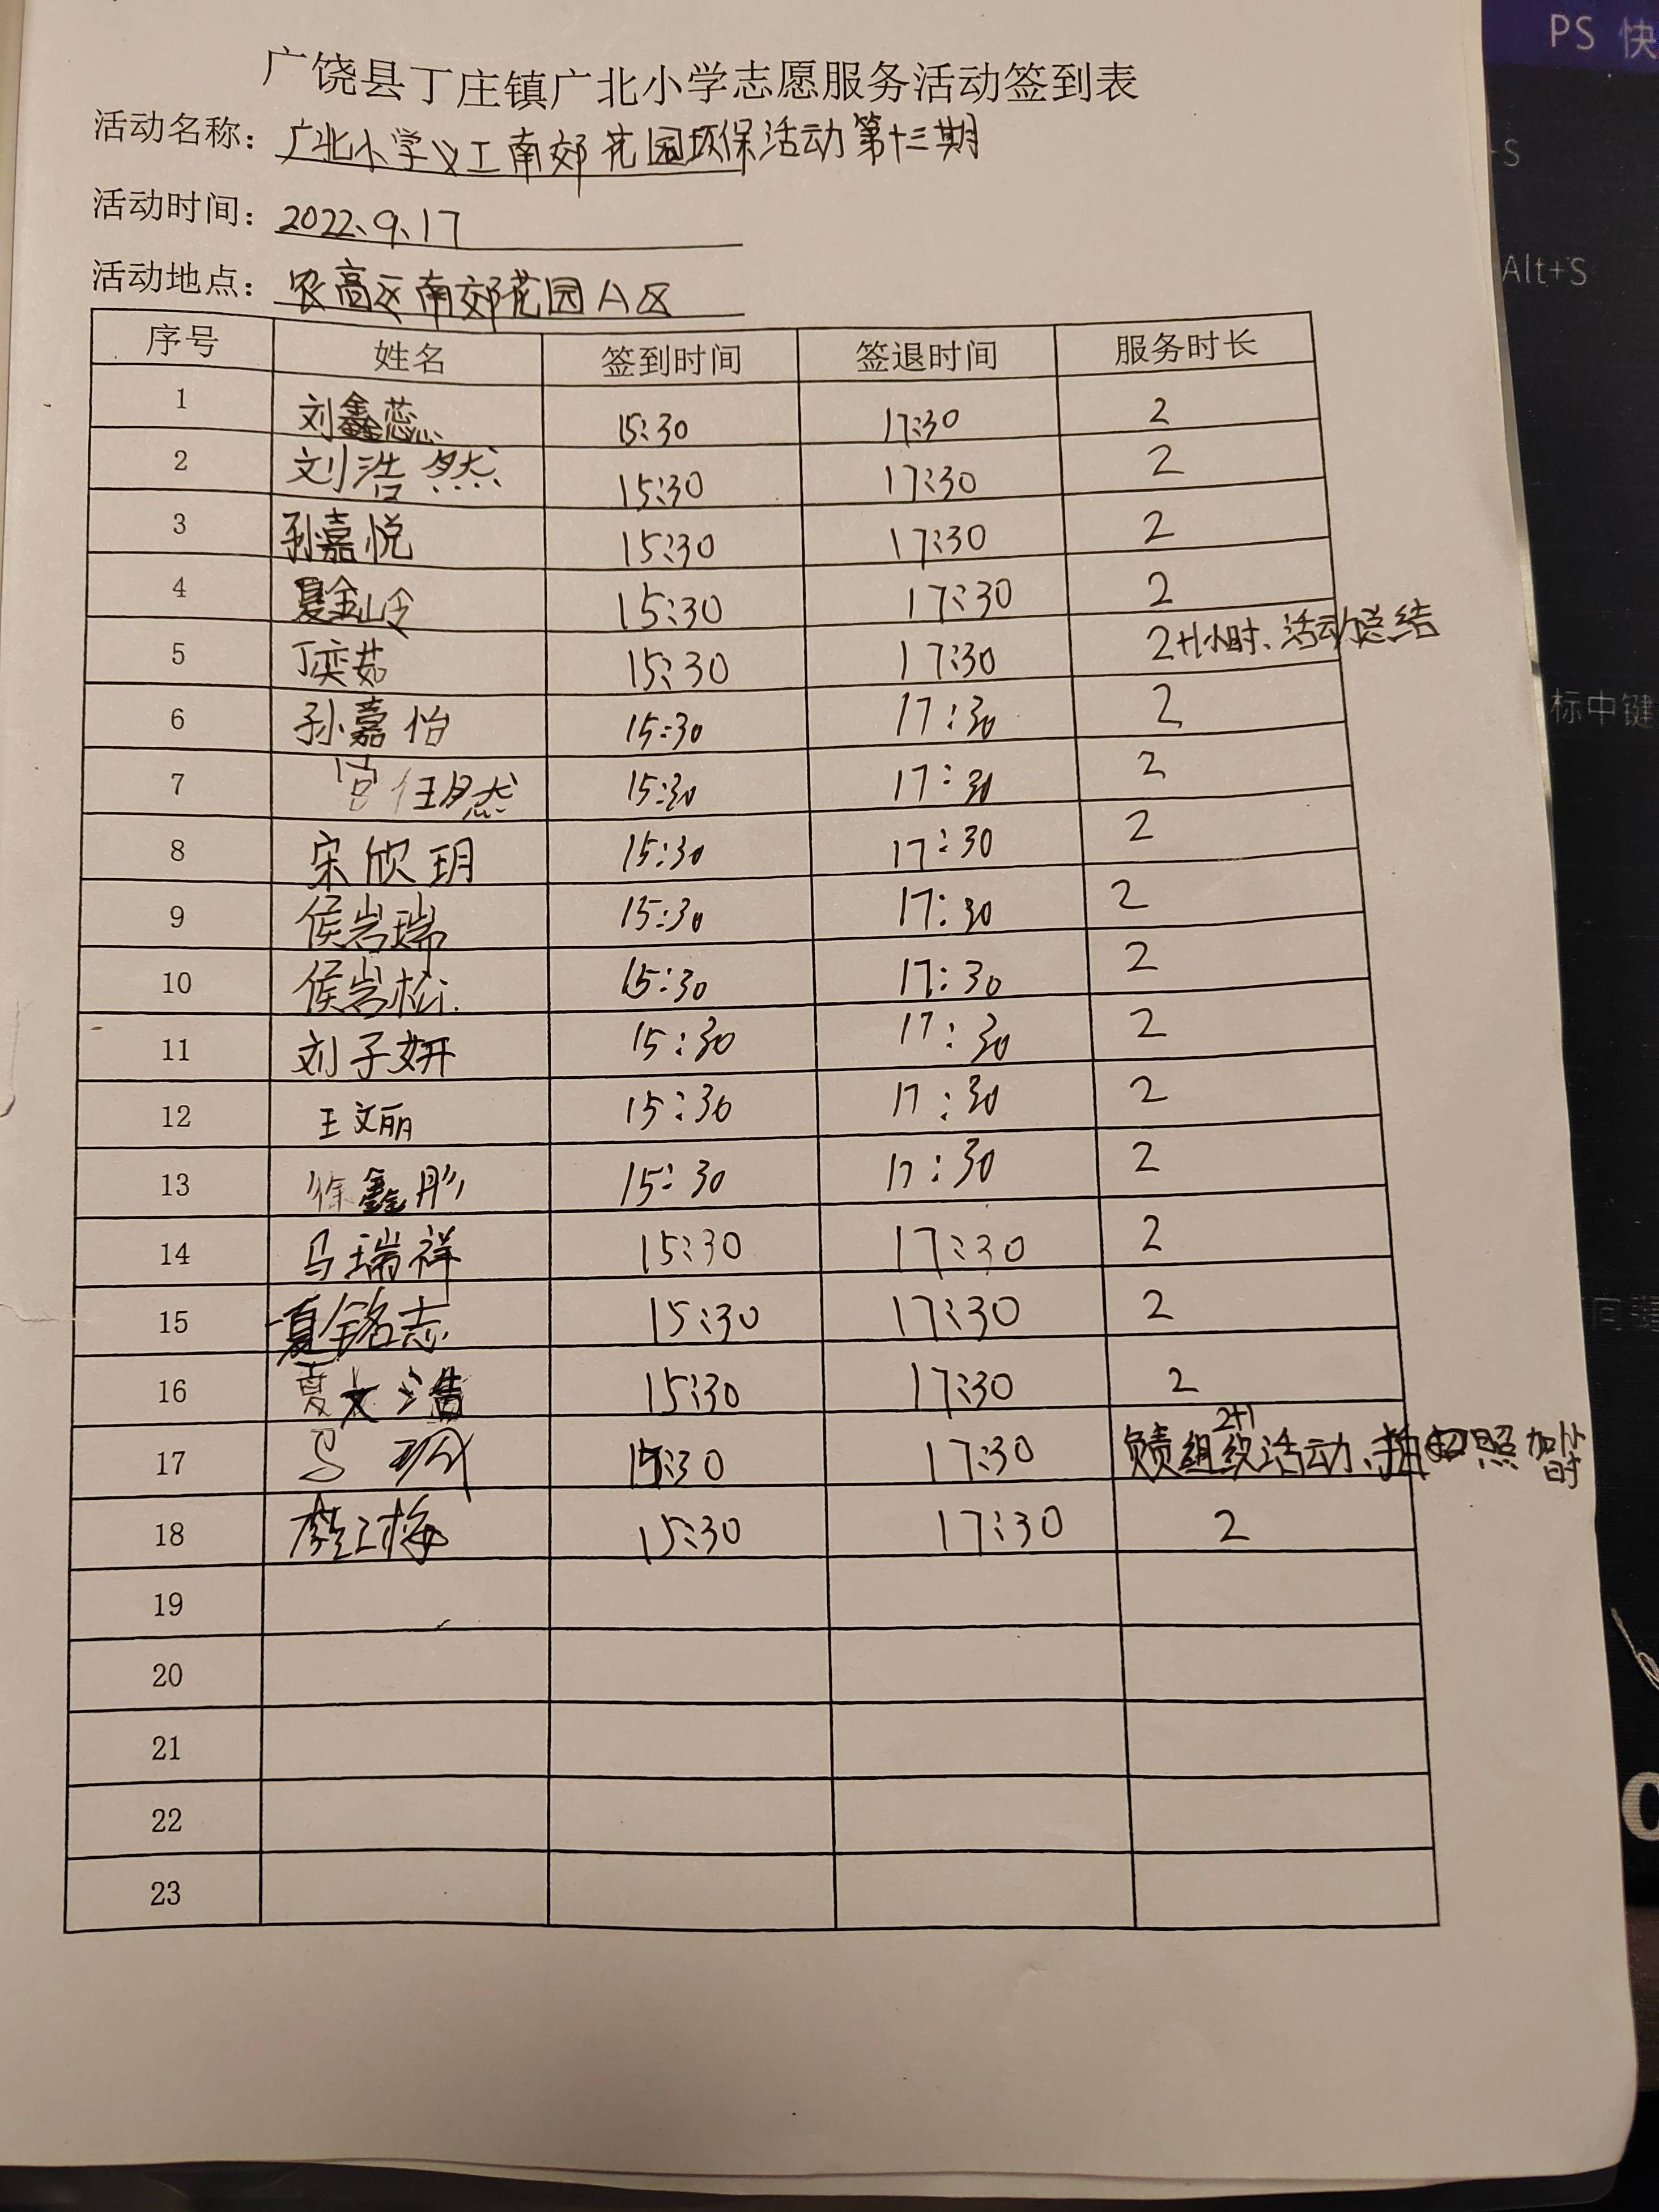 广饶县丁庄镇广北小学志愿服务活动签到表
活动名称：广北小学义工南郊花园环保活动第十三期
活动时间：2022、9、17
活动地点：农高区南郊花园A区
序号 姓名 签到时间 签退时间 服务时长
1 刘鑫蕊 15:30 17:30 2
2 刘浩然 15:30 17:30 2
3 孙嘉悦 15:30 17:30 2
4 夏金岭 15:30 17:30 2
5 丁奕茹 15:30 17:30 2+1小时、活动总结
6 孙嘉怡 15:30 17:30 2
7 宫任然 15:30 17:30 2
8 宋欣玥 15:30 17:30 2
9 侯岩瑞 15:30 17:30 2
10 侯岩松 15:30 17:30 2
11 刘子妍 15:30 17:30 2
12 王文丽 15:30 17:30 2
13 徐鑫彤 15:30 17:30 2
14 马瑞祥 15:30 17:30 2
15 夏铭志 15:30 17:30 2
16 夏文浩 15:30 17:30 2
17 马 15:30 17:30 2+1 负责组织活动、拍照加1小时
18 梅 15:30 17:30 2
19
20
21
22
23
PS 快
+S
Alt+S
标中键